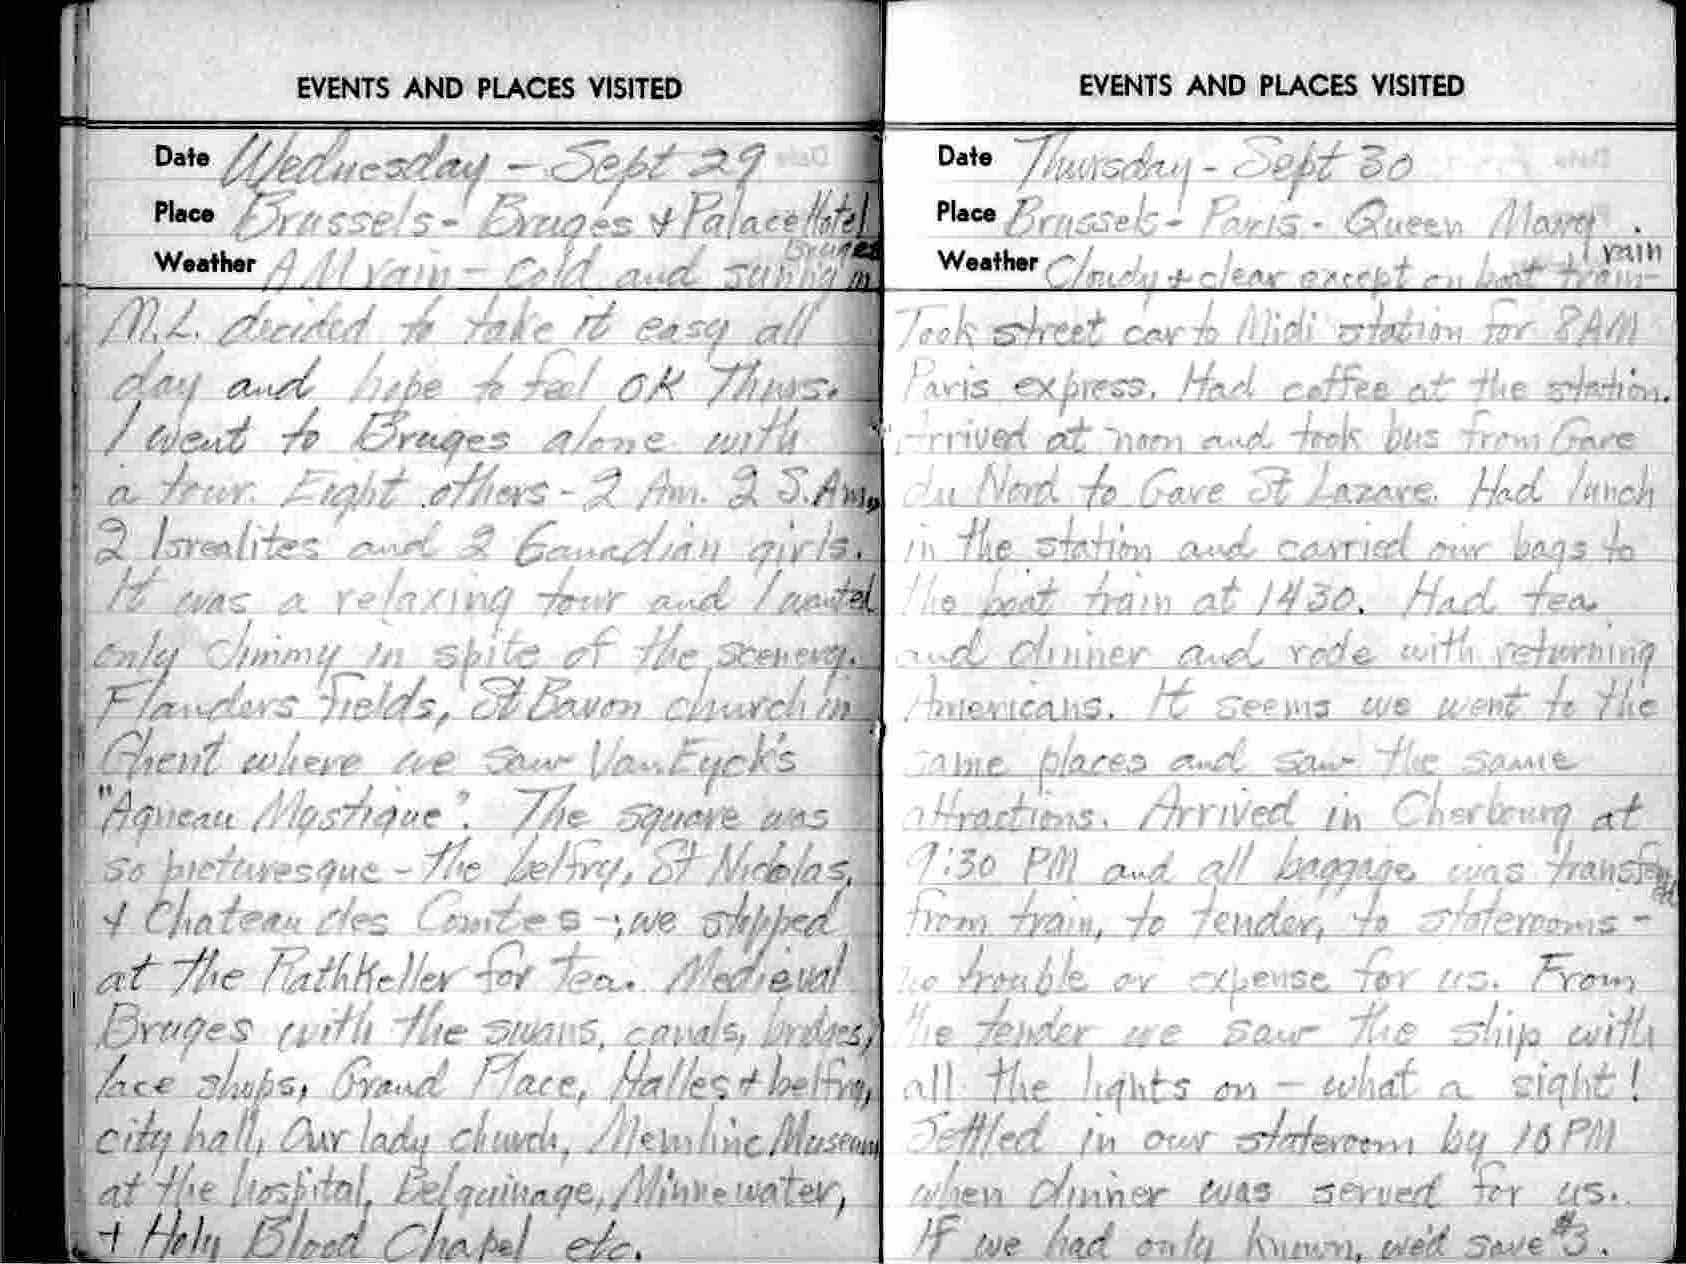 EVENTS AND PLACES VISITED
Date Wednesday - Sept 29
Place Brussels - Bruges & Palace Hotel
Weather AM rain - cold and sunny in Bruges
M.L. decided to take it easy all
day and hope to feel OK Thurs.
I went to Bruges alone with
a tour. Eight others - 2 Am. 2 S. Am.,
2 Isrealites and 2 Canadian girls.
It was a relaxing tour and I wanted
only Jimmy in spite of the scenery.
Flanders fields, St Bavon church in
Ghent where we saw Van Eyck's
"Agneau Mystique". The square was
so picturesque - the belfry, St Nicolas,
& Chateau des Comtes -; we stopped
at the Rathkeller for tea. Medieval
Bruges with the swans, canals, bridges,
lace shops, Grand Place, Halles & belfry,
city hall, Our lady church, Memlinc Museum
at the hospital, Belguinage, Minnewater,
& Holy Blood Chapel etc.
EVENTS AND PLACES VISITED
Date Thursday - Sept 30
Place Brussels - Paris - Queen Mary
Weather Cloudy & clear except on boat train - rain
Took street car to Midi station for 8AM
Paris express. Had coffee at the station.
Arrived at noon and took bus from Gare
du Nord to Gare St Lazare. Had lunch
in the station and carried our bags to
the boat train at 1430. Had tea
and dinner and rode with returning
Americans. It seems we went to the
same places and saw the same
attractions. Arrived in Cherbourg at
9:30 PM and all baggage was transfered
from train, to tender, to staterooms -
no trouble or expense for us. From
the tender we saw the ship with
all the lights on - what a sight!
Settled in our stateroom by 10 PM
when dinner was served for us.
If we had only known, we'd save $3.